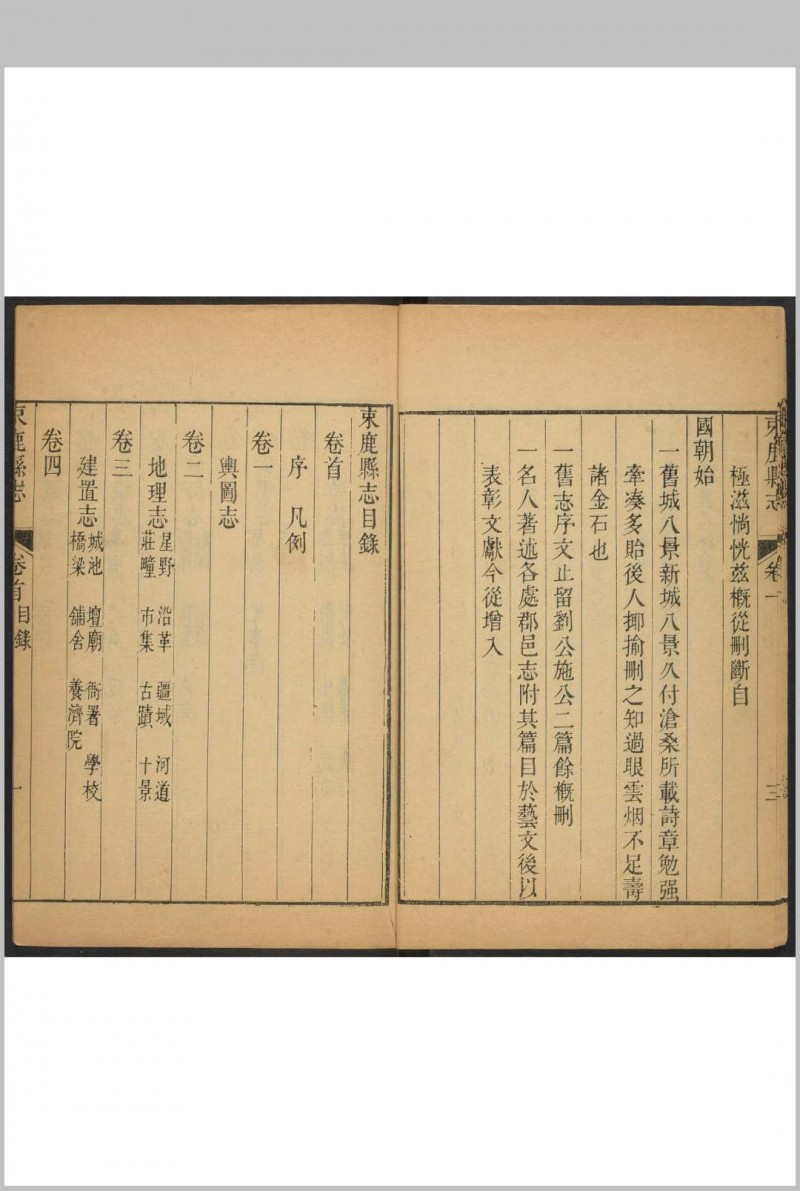 束鹿縣志 卷一 三
極滋惝恍茲概從刪斷自
國朝始
一舊城八景新城八景久付滄桑所載詩章勉强
牽凑多貽後人揶揄刪之知過眼雲烟不足壽
諸金石也
一舊志序文止留劉公施公二篇餘概刪
一名人著述各處郡邑志附其篇目於藝文後以
表彰文獻今從增入
束鹿縣志目錄
卷首
序 凡例
卷一
輿圖志
卷二
地理志 星野 沿革 疆域 河道
莊疃 市集 古蹟 十景
卷三
建置志 城池 壇廟 衙署 學校
橋梁 舖舍 養濟院
卷四
束鹿縣志 卷首目錄 一